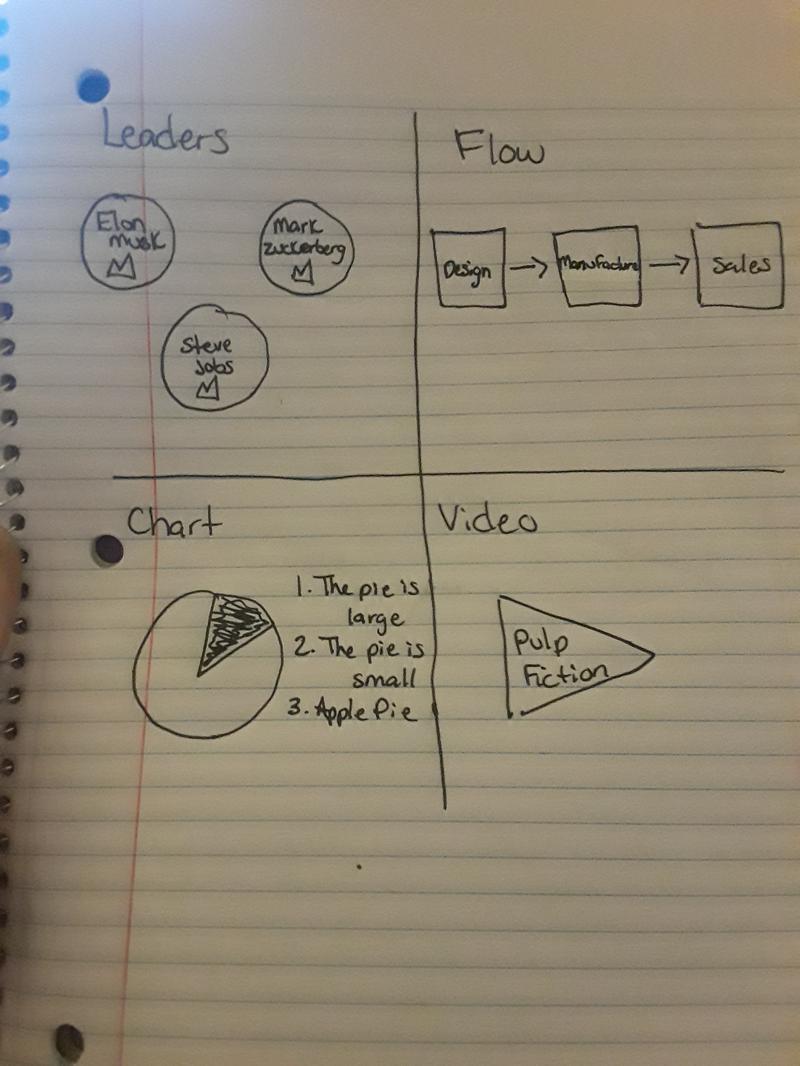 Leaders
Elon
musk
Mark
Zuckerberg
Steve
Jobs
Flow
Design
Manufacture
Sales
Chart
1. The pie is
large
2. The pie is
small
3. Apple Pie
Video
Pulp
Fiction